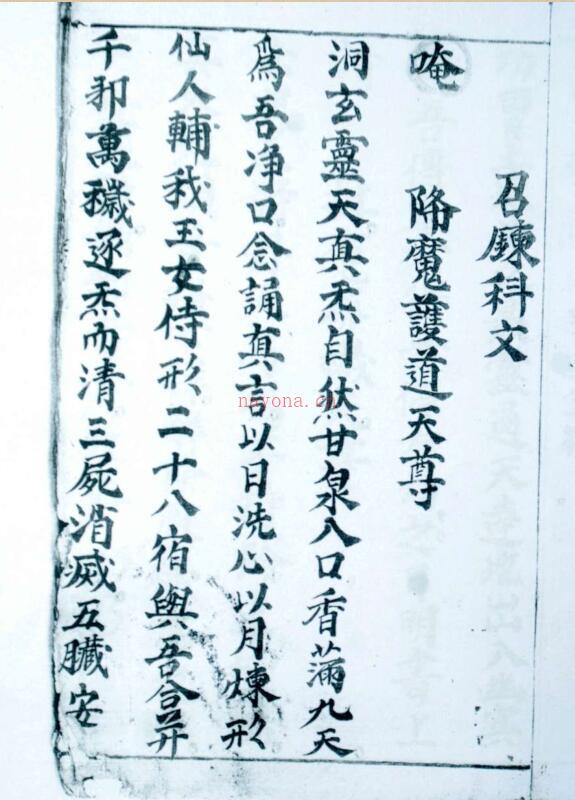 召鍊科文
唵　降魔護道天尊
洞玄靈天真炁自然甘泉入口香滿九天
爲吾净口念誦真言以日洗心以月煉形
仙人輔我玉女侍形二十八宿與吾合并
千邪萬穢逐炁而清三屍消滅五臟安
nayona.cn